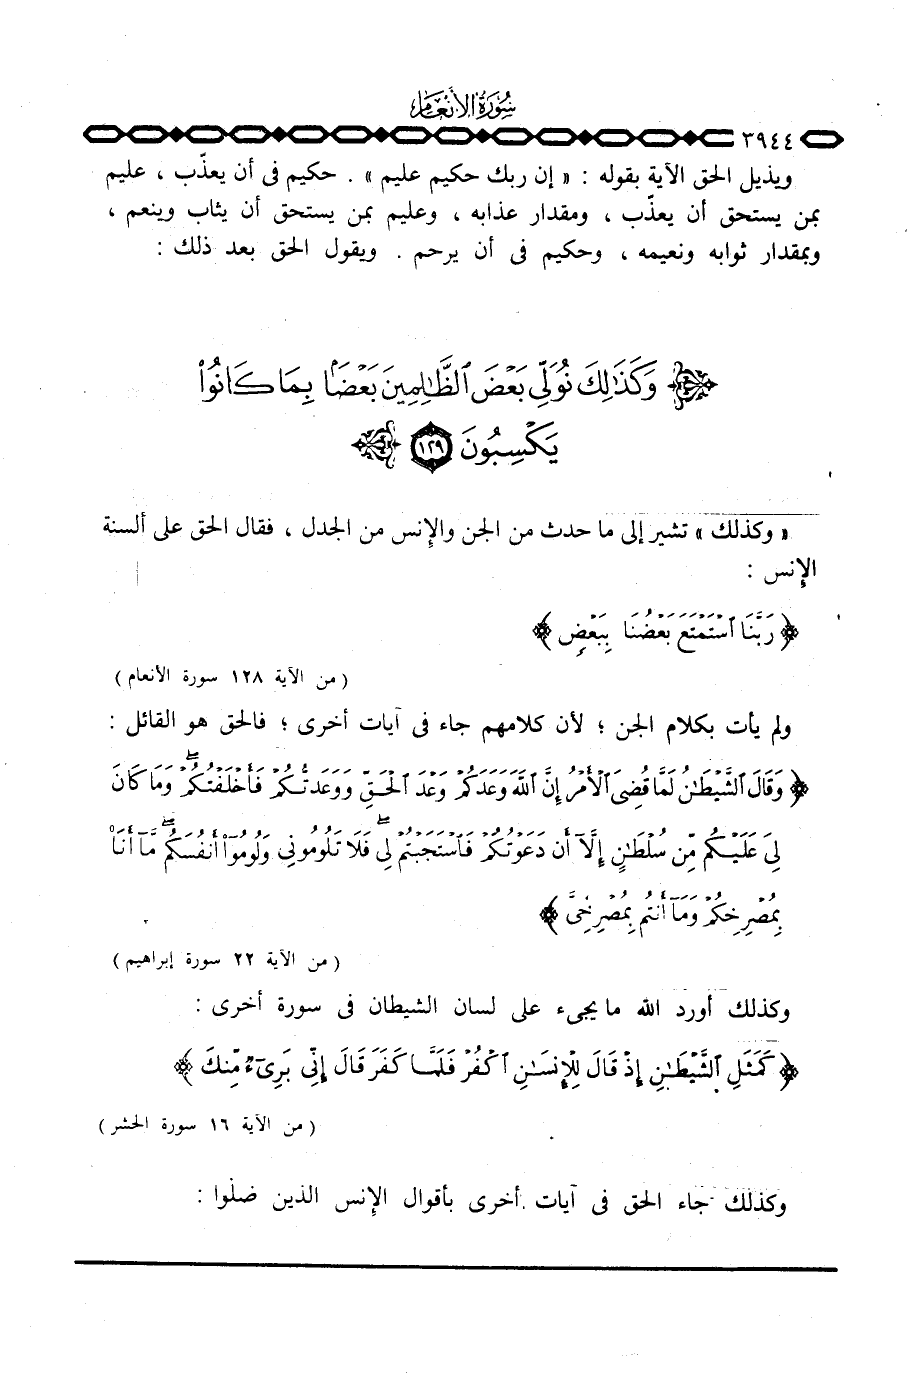 سُورَةُ الأَنْعَامِ
٣٩٤٤
ويذيل الحق الآية بقوله : « إن ربك حكيم عليم » . حكيم فى أن يعذّب ، عليم
بمن يستحق أن يعذّب ، ومقدار عذابه ، وعليم بمن يستحق أن يثاب وينعم ،
وبمقدار ثوابه ونعيمه ، وحكيم فى أن يرحم . ويقول الحق بعد ذلك :
وَكَذَٰلِكَ نُوَلِّي بَعْضَ ٱلظَّٰلِمِينَ بَعْضًۢا بِمَا كَانُوا۟
يَكْسِبُونَ ١٢٩
« وكذلك » تشير إلى ما حدث من الجن والإنس من الجدل ، فقال الحق على ألسنة
الإنس :
﴿ رَبَّنَا ٱسْتَمْتَعَ بَعْضُنَا بِبَعْضٍ ﴾
( من الآية ١٢٨ سورة الأنعام )
ولم يأت بكلام الجن ؛ لأن كلامهم جاء فى آيات أخرى ؛ فالحق هو القائل :
﴿ وَقَالَ ٱلشَّيْطَٰنُ لَمَّا قُضِىَ ٱلْأَمْرُ إِنَّ ٱللَّهَ وَعَدَكُمْ وَعْدَ ٱلْحَقِّ وَوَعَدتُّكُمْ فَأَخْلَفْتُكُمْ ۖ وَمَا كَانَ
لِىَ عَلَيْكُم مِّن سُلْطَٰنٍ إِلَّآ أَن دَعَوْتُكُمْ فَٱسْتَجَبْتُمْ لِى ۖ فَلَا تَلُومُونِى وَلُومُوٓا۟ أَنفُسَكُم ۖ مَّآ أَنَا۠
بِمُصْرِخِكُمْ وَمَآ أَنتُم بِمُصْرِخِىَّ ﴾
( من الآية ٢٢ سورة إبراهيم )
وكذلك أورد الله ما يجىء على لسان الشيطان فى سورة أخرى :
﴿ كَمَثَلِ ٱلشَّيْطَٰنِ إِذْ قَالَ لِلْإِنسَٰنِ ٱكْفُرْ فَلَمَّا كَفَرَ قَالَ إِنِّى بَرِىٓءٌ مِّنكَ ﴾
( من الآية ١٦ سورة الحشر )
وكذلك جاء الحق فى آيات أخرى بأقوال الإنس الذين ضلوا :